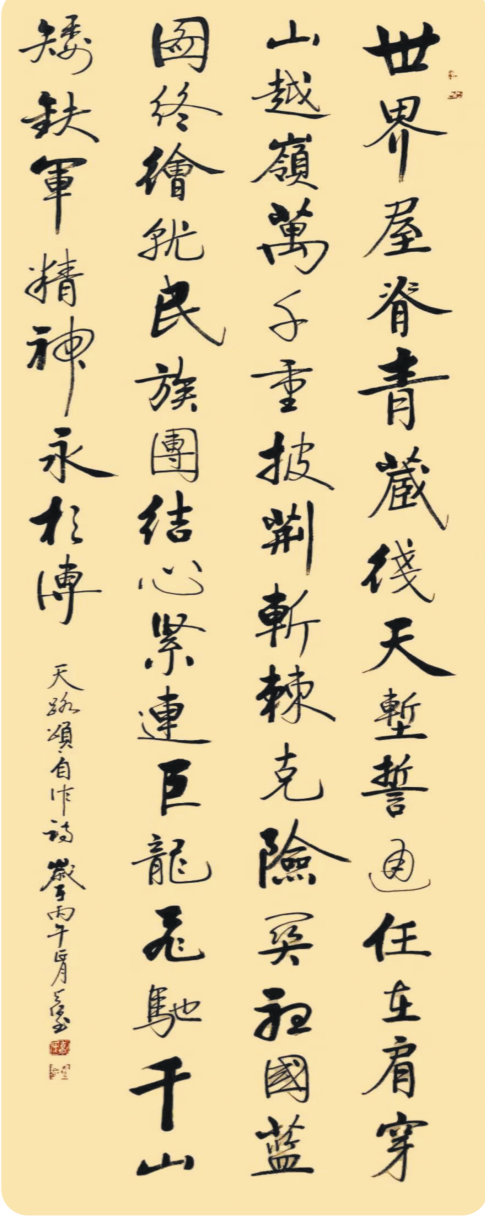 世界屋脊青藏綫天塹誓通任在肩穿
山越嶺萬千重披荆斬棘克險關祖國藍
圖終繪就民族團結心緊連巨龍飛馳千山
矮鉄軍精神永相傳
天路頌自作詩 歲在丙午月